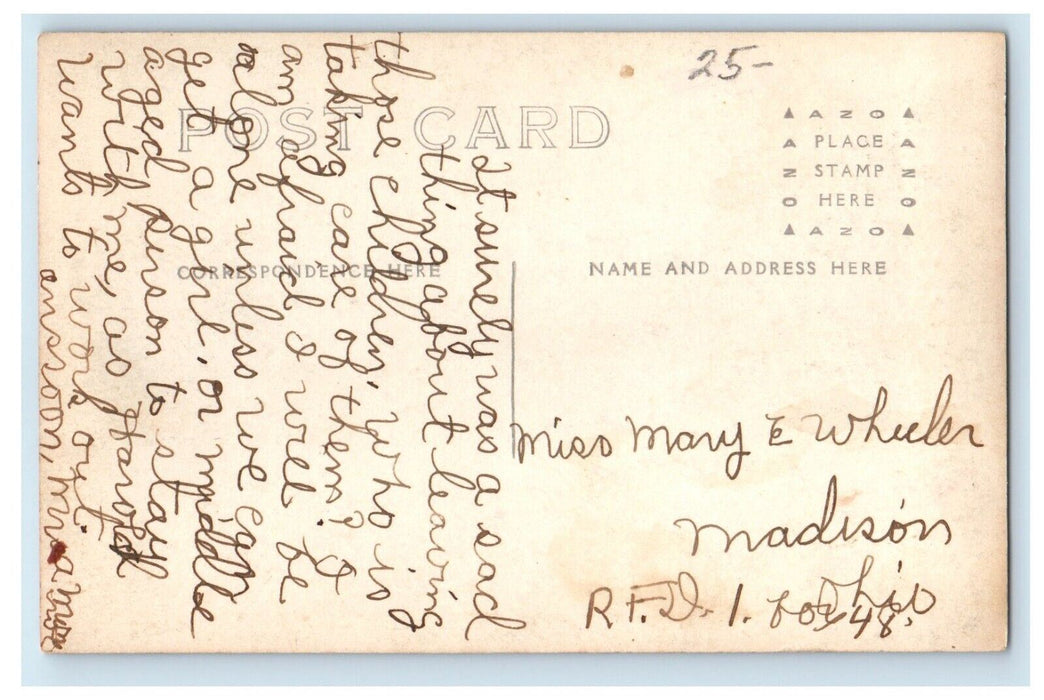 25-
POST CARD
AZO
PLACE
STAMP
HERE
AZO
CORRESPONDENCE HERE
NAME AND ADDRESS HERE
It surely was a sad
thing about leaving
those children, who is
taking care of them? I
am afraid I will be
alone unless we can
get a girl, or middle
aged person to stay
with me, as Harold
wants to work out.
Miss Mary E Wheeler
Madison
Ohio
R.F.D. 1. Box 48.